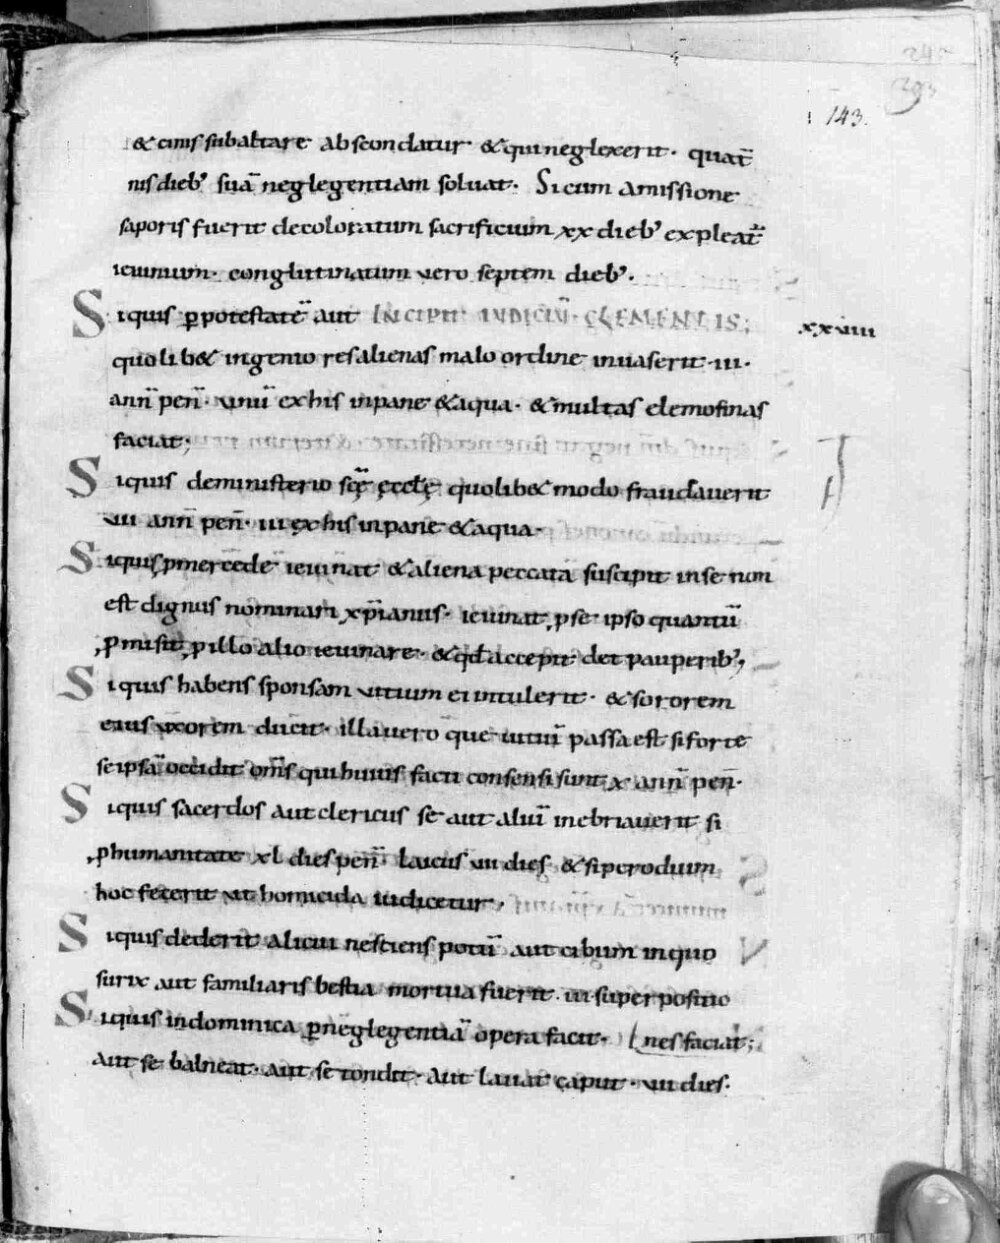 143.
& cinis subaltare abscondatur· & qui neglexerit· quat̄
nis dieb' suā neglegentiam soluat· Si cum amissione
saporis fuerit decoloratum sacrificium xx dieb' expleat̄
ieiunium· conglutinatum vero septem dieb'.
Siquis ꝑ potestatē aut INCIPIT IUDICIŪ· CLEMENTIS;
xxviii
quolib& ingenio res alienas malo ordine inuaserit· iii·
ann̄ pen̄· unū ex his in pane & aqua· & multas elemosinas
faciat;
Siquis de ministerio scę̄ ęccłę quolib& modo fraudauerit
vii ann̄ pen̄· iii ex his in pane & aqua·
Siquis ꝓ mercede ieiunat & aliena peccata suscipit in se non
est dignus nominari xp̄ianus· ieiunat ꝓ se ipso quantū
ꝓmisit ꝓ illo alio ieiunare· & qđ accepit det pauperib',
Siquis habens sponsam uitium ei intulerit· & sororem
eius uxorem ducit· illa uero que uitiū passa est si forte
se ipsā occidit om̄s qui huius facti consensi sunt x· ann̄ pen̄·
Siquis sacerdos aut clericus se aut aliū inebriauerit si
ꝓ humanitate xl dies pen̄ laicus vii dies & si per odium
hoc fecerit ut homicida iudicetur·
Siquis dederit alicui nesciens potū aut cibum in quo
surix aut familiaris bestia mortua fuerit· iii superpositio
Siquis in dominica ꝑ neglegentiā opera facit· nes faciat;
aut se balneat· aut se tondit· aut lauat caput· vii dies·